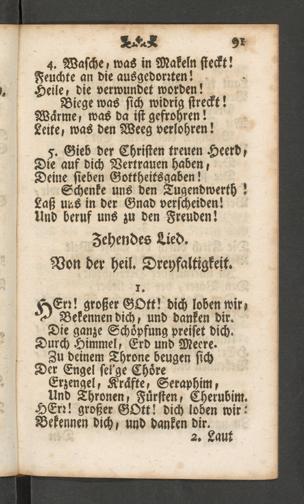 91
4. Wasche, was in Makeln steckt!
Feuchte an die ausgedorrten!
Heile, die verwundet worden!
Biege was sich widrig streckt!
Wärme, was da ist gefrohren!
Leite, was den Weeg verlohren!
5. Gieb der Christen treuen Heerd,
Die auf dich Vertrauen haben,
Deine sieben Gottheitsgaben!
Schenke uns den Tugendwerth!
Laß uns in der Gnad verscheiden!
Und beruf uns zu den Freuden!
Zehendes Lied.
Von der heil. Dreyfaltigkeit.
1.
HErr! großer GOtt! dich loben wir,
Bekennen dich, und danken dir.
Die ganze Schöpfung preiset dich.
Durch Himmel, Erd und Meere.
Zu deinem Throne beugen sich
Der Engel sel'ge Chöre
Erzengel, Kräfte, Seraphim,
Und Thronen, Fürsten, Cherubim.
HErr! großer GOtt! dich loben wir:
Bekennen dich, und danken dir.
2. Laut